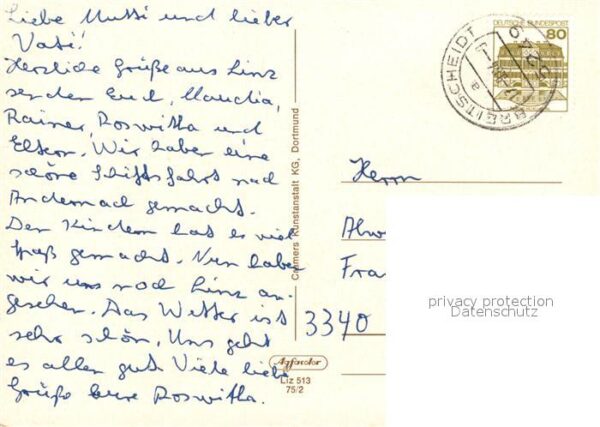 Liebe Mutti und lieber
Vati!
Herzliche Grüße aus Linz
senden Euch, Claudia,
Rainer, Roswitha und
Eltern. Wir haben eine
schöne Schiffsfahrt nach
Andernach gemacht.
Den Kindern hat es viel
Spaß gemacht. Nun haben
wir uns noch Linz an-
gesehen. Das Wetter ist
sehr schön. Uns geht
es allen gut. Viele liebe
Grüße Eure Roswitha.
Cramers Kunstanstalt KG, Dortmund
Agfacolor
Liz 513
75/2
DEUTSCHE BUNDESPOST
80
BREITSCHEIDT
a
Herrn
Fra
3340
privacy protection
Datenschutz